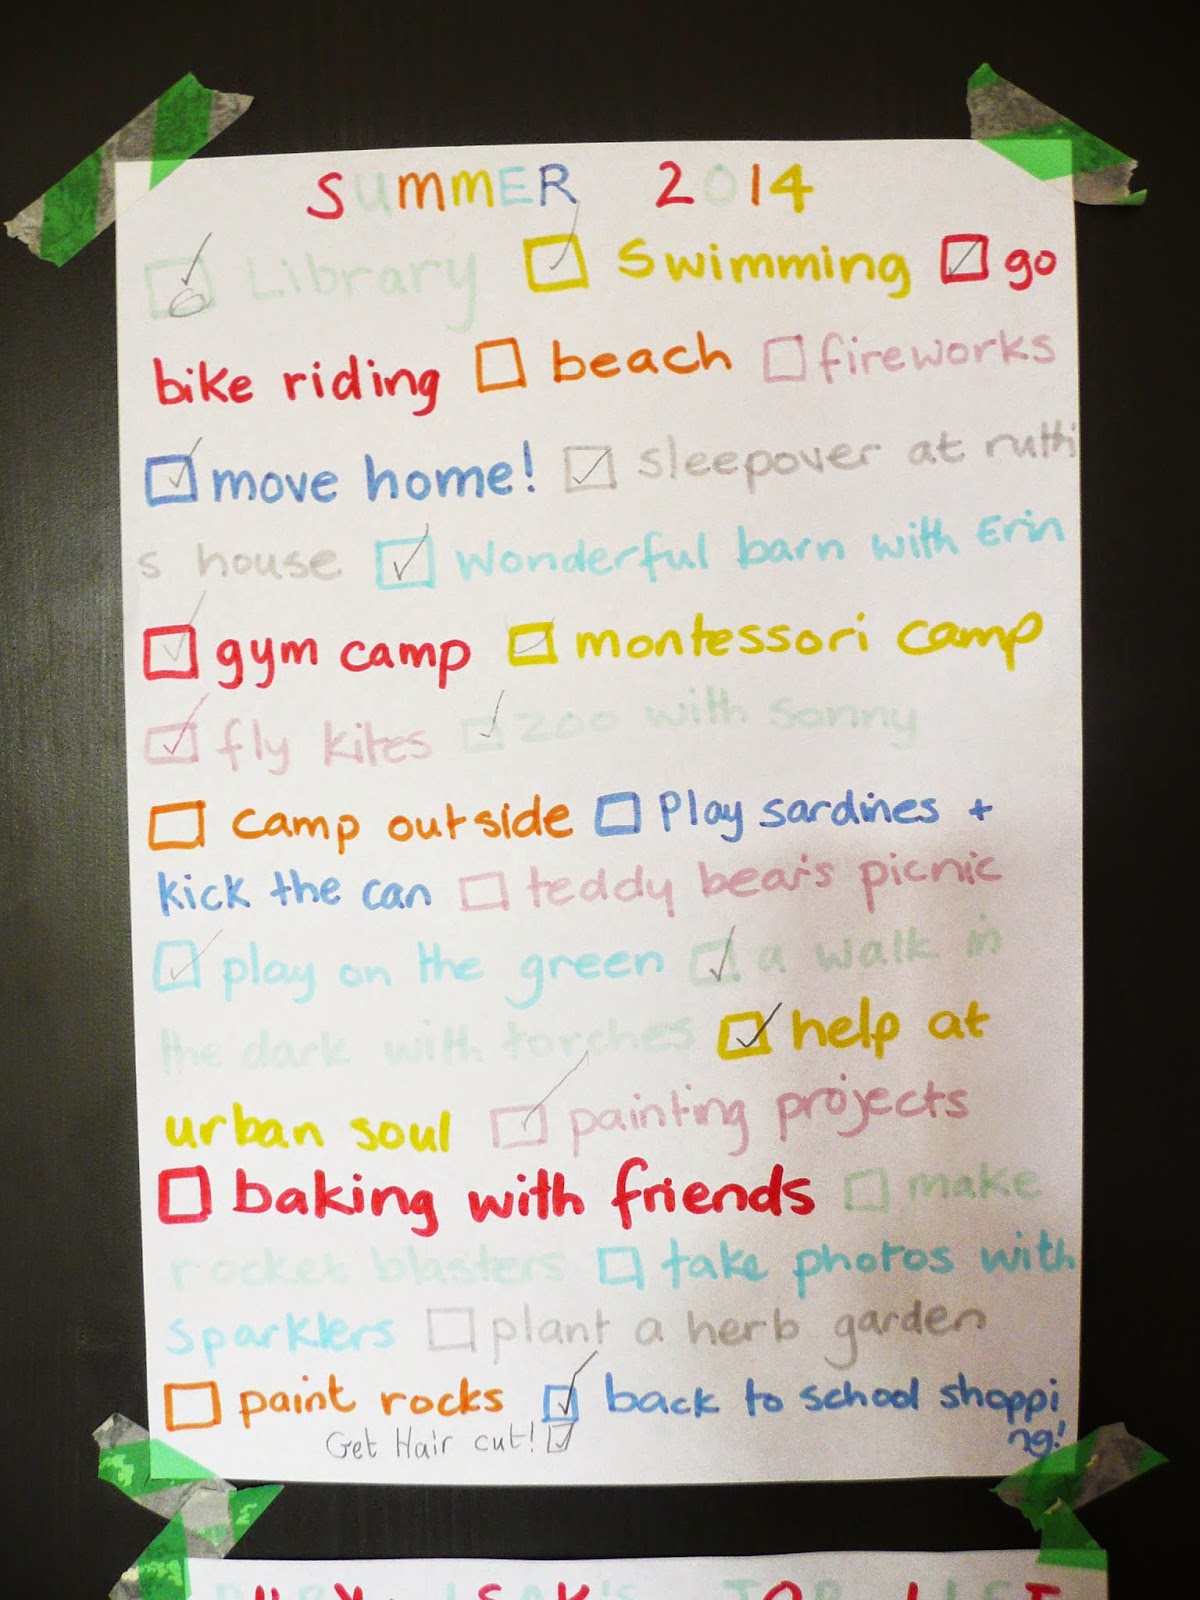 SUMMER 2014
Library Swimming go
bike riding beach fireworks
move home! sleepover at ruthi
s house Wonderful barn with Erin
gym camp montessori camp
fly kites zoo with sonny
camp outside Play sardines +
kick the can teddy bear's picnic
play on the green a walk in
the dark with torches help at
urban soul painting projects
baking with friends make
rocket blasters take photos with
sparklers plant a herb garden
paint rocks back to school shoppi
ng!
Get Hair cut!